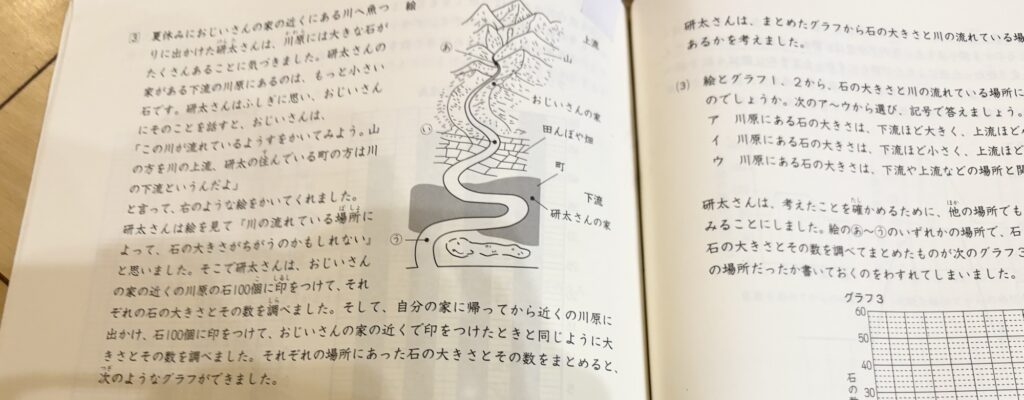 ③ 夏休みにおじいさんの家の近くにある川へ魚つ
りに出かけた研太さんは、川原には大きな石が
たくさんあることに気づきました。研太さんの
家がある下流の川原にあるのは、もっと小さい
石です。研太さんはふしぎに思い、おじいさん
にそのことを話すと、おじいさんは、
「この川が流れているようすをかいてみよう。山
の方を川の上流、研太の住んでいる町の方は川
の下流というんだよ」
と言って、右のような絵をかいてくれました。
研太さんは絵を見て「川の流れている場所に
よって、石の大きさがちがうのかもしれない」
と思いました。そこで研太さんは、おじいさん
の家の近くの川原の石100個に印をつけて、それ
ぞれの石の大きさとその数を調べました。そして、自分の家に帰ってから近くの川原に
出かけ、石100個に印をつけて、おじいさんの家の近くで印をつけたときと同じように大
きさとその数を調べました。それぞれの場所にあった石の大きさとその数をまとめると、
次のようなグラフができました。
絵
上流
あ
山
おじいさんの家
い
田んぼや畑
町
下流
研太さんの家
う
研太さんは、まとめたグラフから石の大きさと川の流れている場
あるかを考えました。
(3) 絵とグラフ1、2から、石の大きさと川の流れている場所に
のでしょうか。次のア〜ウから選び、記号で答えましょう。
ア 川原にある石の大きさは、下流ほど大きく、上流ほ
イ 川原にある石の大きさは、下流ほど小さく、上流ほ
ウ 川原にある石の大きさは、下流や上流などの場所と関
研太さんは、考えたことを確かめるために、他の場所でも
みることにしました。絵のあ〜うのいずれかの場所で、石
石の大きさとその数を調べてまとめたものが次のグラフ3
の場所だったか書いておくのをわすれてしまいました。
グラフ3
60
50
40
30
石の